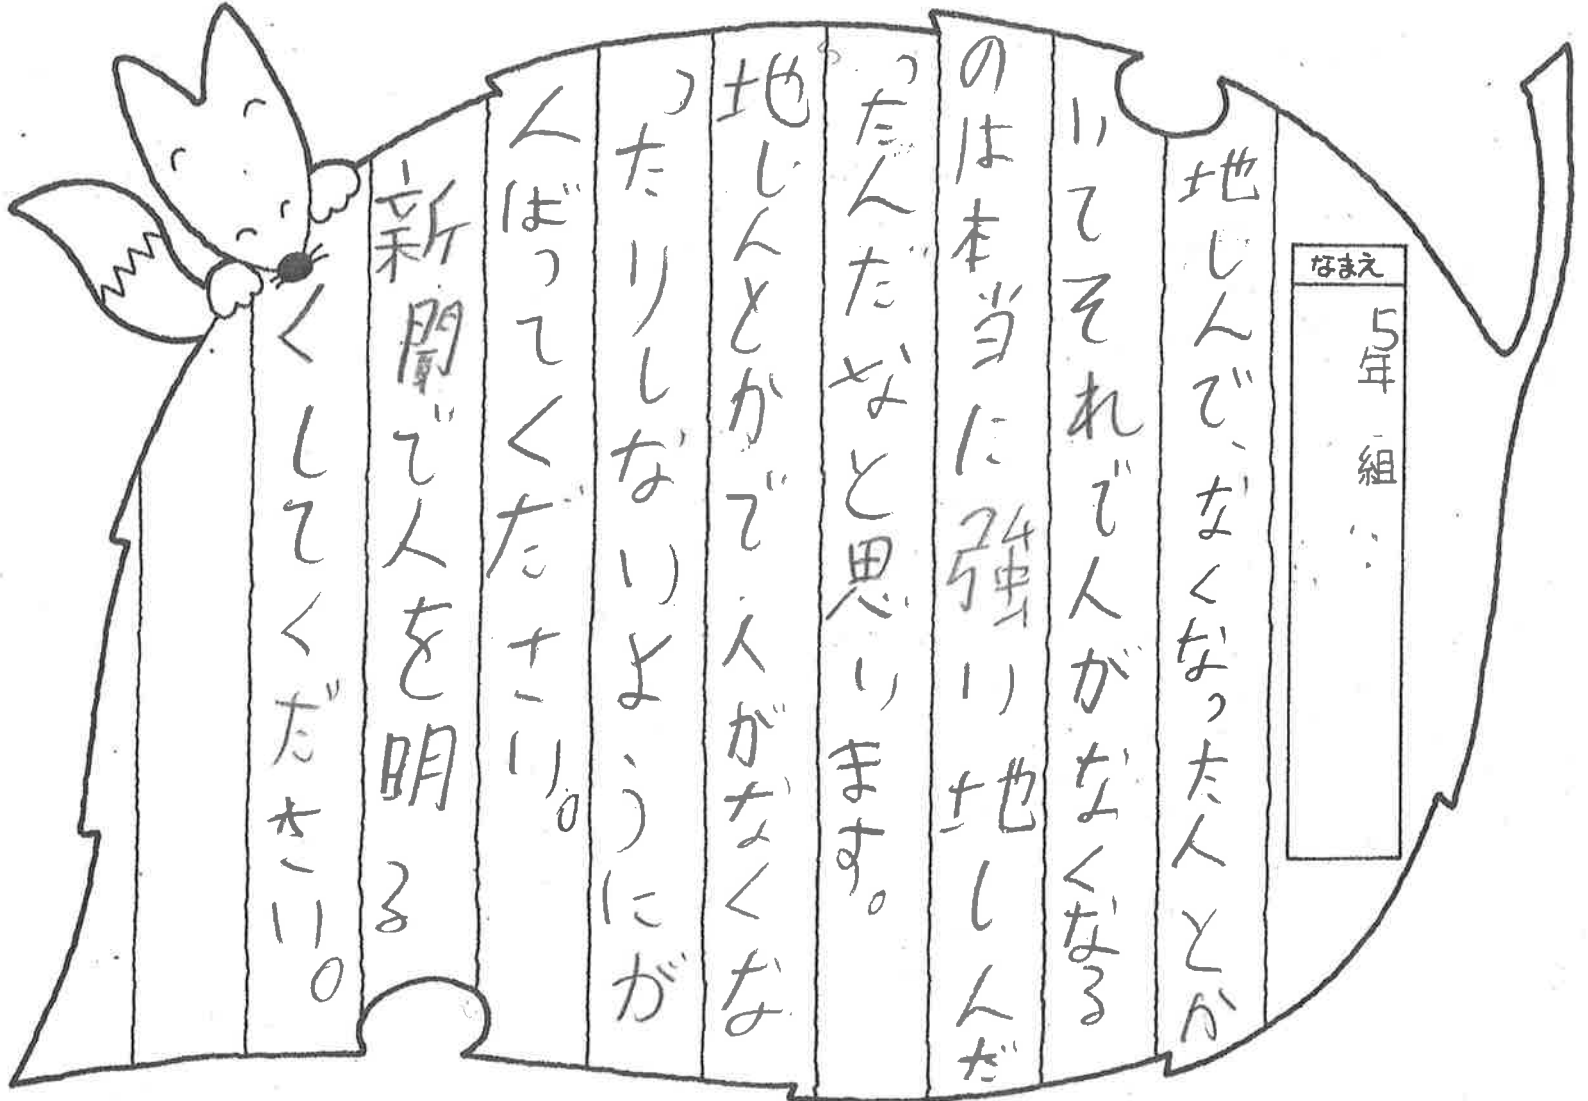 なまえ
5年 組
地しんで、なくなった人とか
いてそれで人がなくなる
のは本当に強い地しんだ
ったんだなと思います。
地しんとかで人がなくな
ったりしないようにが
んばってください。
新聞で人を明る
くしてください。